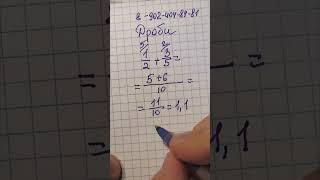 8-902-404-89-81
Дроби
5/ 2/
1/2 + 3/5 =
= (5+6)/10 =
= 11/10 = 1,1